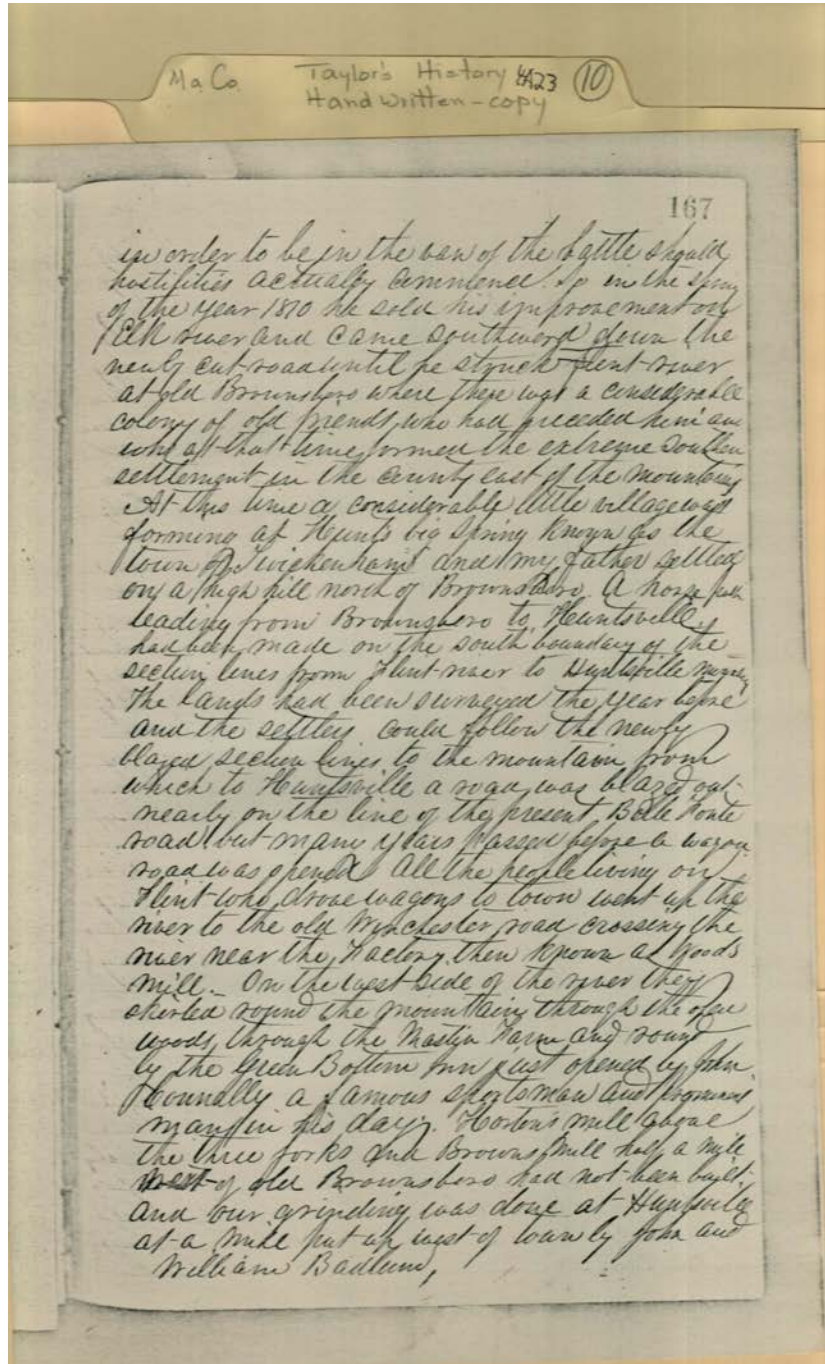 Ma. Co. Taylor's History 4A23 10
Handwritten-copy
167
in order to be in the van of the battle should
hostilities actually commence. So in the spring
of the year 1810 he sold his improvement on
Elk river and came southward down the
newly cut road until he struck Flint river
at old Brownsboro where there was a considerable
colony of old friends, who had preceded him and
who at that time formed the extreme southern
settlement in the county east of the mountains
At this time a considerable little village was
forming at Hunts big Spring known as the
town of Twickenham and my father settled
on a high hill north of Brownsboro. A horse path
leading from Brownsboro to Huntsville,
had been made on the south boundary of the
section lines from Flint river to Huntsville
The lands had been surveyed the year before
and the settlers could follow the newly
blazed section lines to the mountain from
which to Huntsville a road was blazed out
nearly on the line of the present Belle Fonte
road but many years passed before a wagon
road was opened. All the people living on
Flint who drove wagons to town went up the
river to the old Winchester road crossing the
river near the Factory then known as Woods
mill. - On the west side of the river they
skirted round the mountain, through the open
woods, through the Mastin Farm and round
by the Green Bottom Inn just opened by John
Connally a famous sportsman and prominent
man in his day. Horton's mill above
the three forks and Browns Mill half a mile
west of old Brownsboro had not been built.
and our grinding was done at Huntsville
at a mill put up west of town by John and
William Badlum,